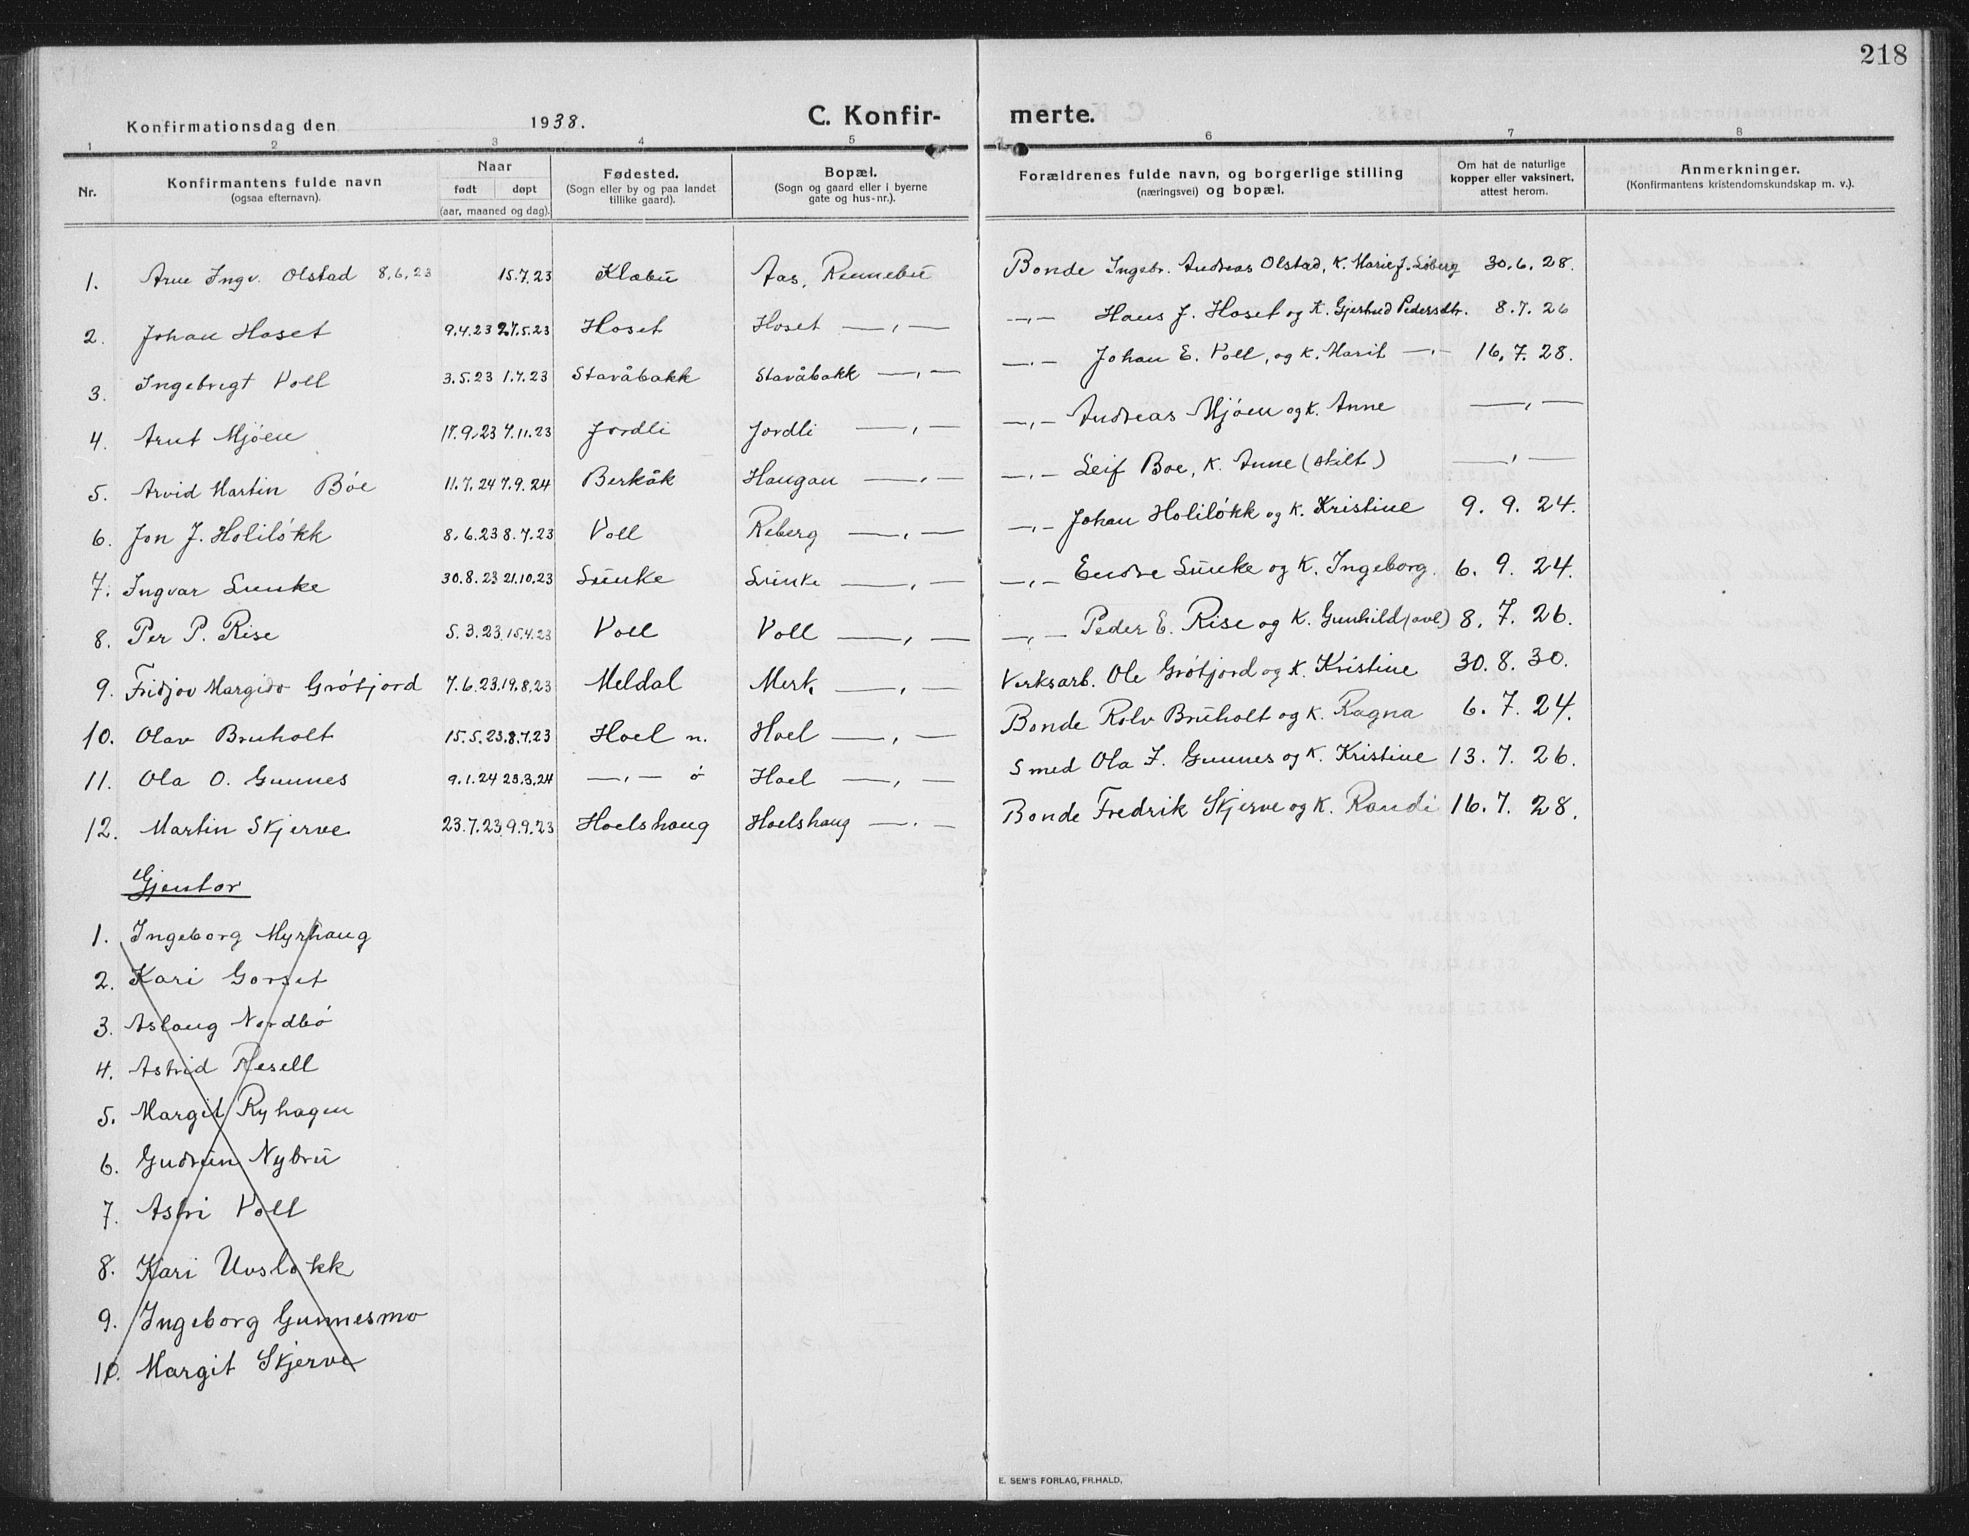 218
Konfirmationsdag den 1938. C. Konfir- merte.
1 2 3 4 5 6 7 8
Nr. Konfirmantens fulde navn (ogsaa efternavn). Naar født døpt (aar, maaned og dag). Fødested. (Sogn eller by og paa landet tillike gaard). Bopæl. (Sogn og gaard eller i byerne gate og hus-nr.). Forældrenes fulde navn, og borgerlige stilling (næringsvei) og bopæl. Om hat de naturlige kopper eller vaksinert, attest herom. Anmerkninger. (Konfirmantens kristendomskundskap m. v.).
1. Arne Ingv. Olstad 8.6.23 15.7.23 Klæbu Aas, Rennebu Bonde Ingebr. Andreas Olstad, K. Marie J. Løberg 30.6.28.
2. Johan Hoset 9.4.23 27.5.23 Hoset Hoset —„— —„— Hans J. Hoset og K. Gjertrud Pedersdtr. 8.7.26
3. Ingebrigt Voll 3.5.23 1.7.23 Stavåbakk Stavåbakk —„— —„— Johan E. Voll, og K. Marit —„— 16.7.28.
4. Arnt Mjøen 17.9.23 4.11.23 Jordli Jordli —„— —„— Andreas Mjøen og K. Anne —„—
5. Arvid Martin Bøe 11.7.24 7.9.24 Berkåk Haugan —„— —„— Leif Boe, K. Anne (skilt) —„—
6. Jon J. Holiløkk 8.6.23 8.7.23 Voll Reberg —„— —„— Johan Holiløkk og K. Kristine 9.9.24.
7. Ingvar Lunke 30.8.23 21.10.23 Lunke Lunke —„— —„— Endre Lunke og K. Ingeborg. 6.9.24.
8. Per P. Rise 5.3.23 15.4.23 Voll Voll —„— —„— Peder E. Rise og K. Gunhild (avl) 8.7.26.
9. Fridjov Margido Grøtjord 7.6.23 19.8.23 Meldal Merk, —„— Verksarb. Ole Grøtjord og K. Kristine 30.8.30.
10. Olav Bruholt 15.5.23 8.7.23 Hoel n. Hoel —„— Bonde Rolv Bruholt og K. Ragna 6.7.24.
11. Ola O. Gunnes 9.1.24 23.3.24 —„— ø Hoel —„— Smed Ola J. Gunnes og K. Kristine 13.7.26.
12. Martin Skjerve 23.7.23 9.9.23 Hoelshaug Hoelshaug —„— Bonde Fredrik Skjerve og K. Randi 16.7.28.
Gjentor
1. Ingeborg Myrhaug
2. Kari Gorset
3. Aslaug Nordbø
4. Astrid Resell
5. Margit Ryhagen
6. Gudrun Nybru
7. Astri Voll
8. Kari Uvsløkk
9. Ingeborg Gunnesmo
10. Margit Skjerve
E. SEM'S FORLAG, FR.HALD.